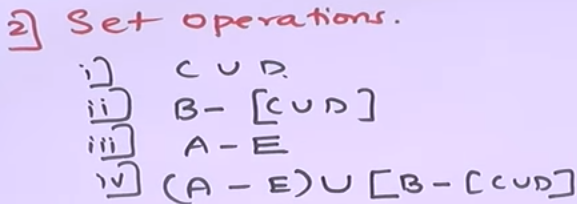 2] Set operations.
i] C ∪ D.
ii] B - [C ∪ D]
iii] A - E
iv] (A - E) ∪ [B - [C ∪ D]